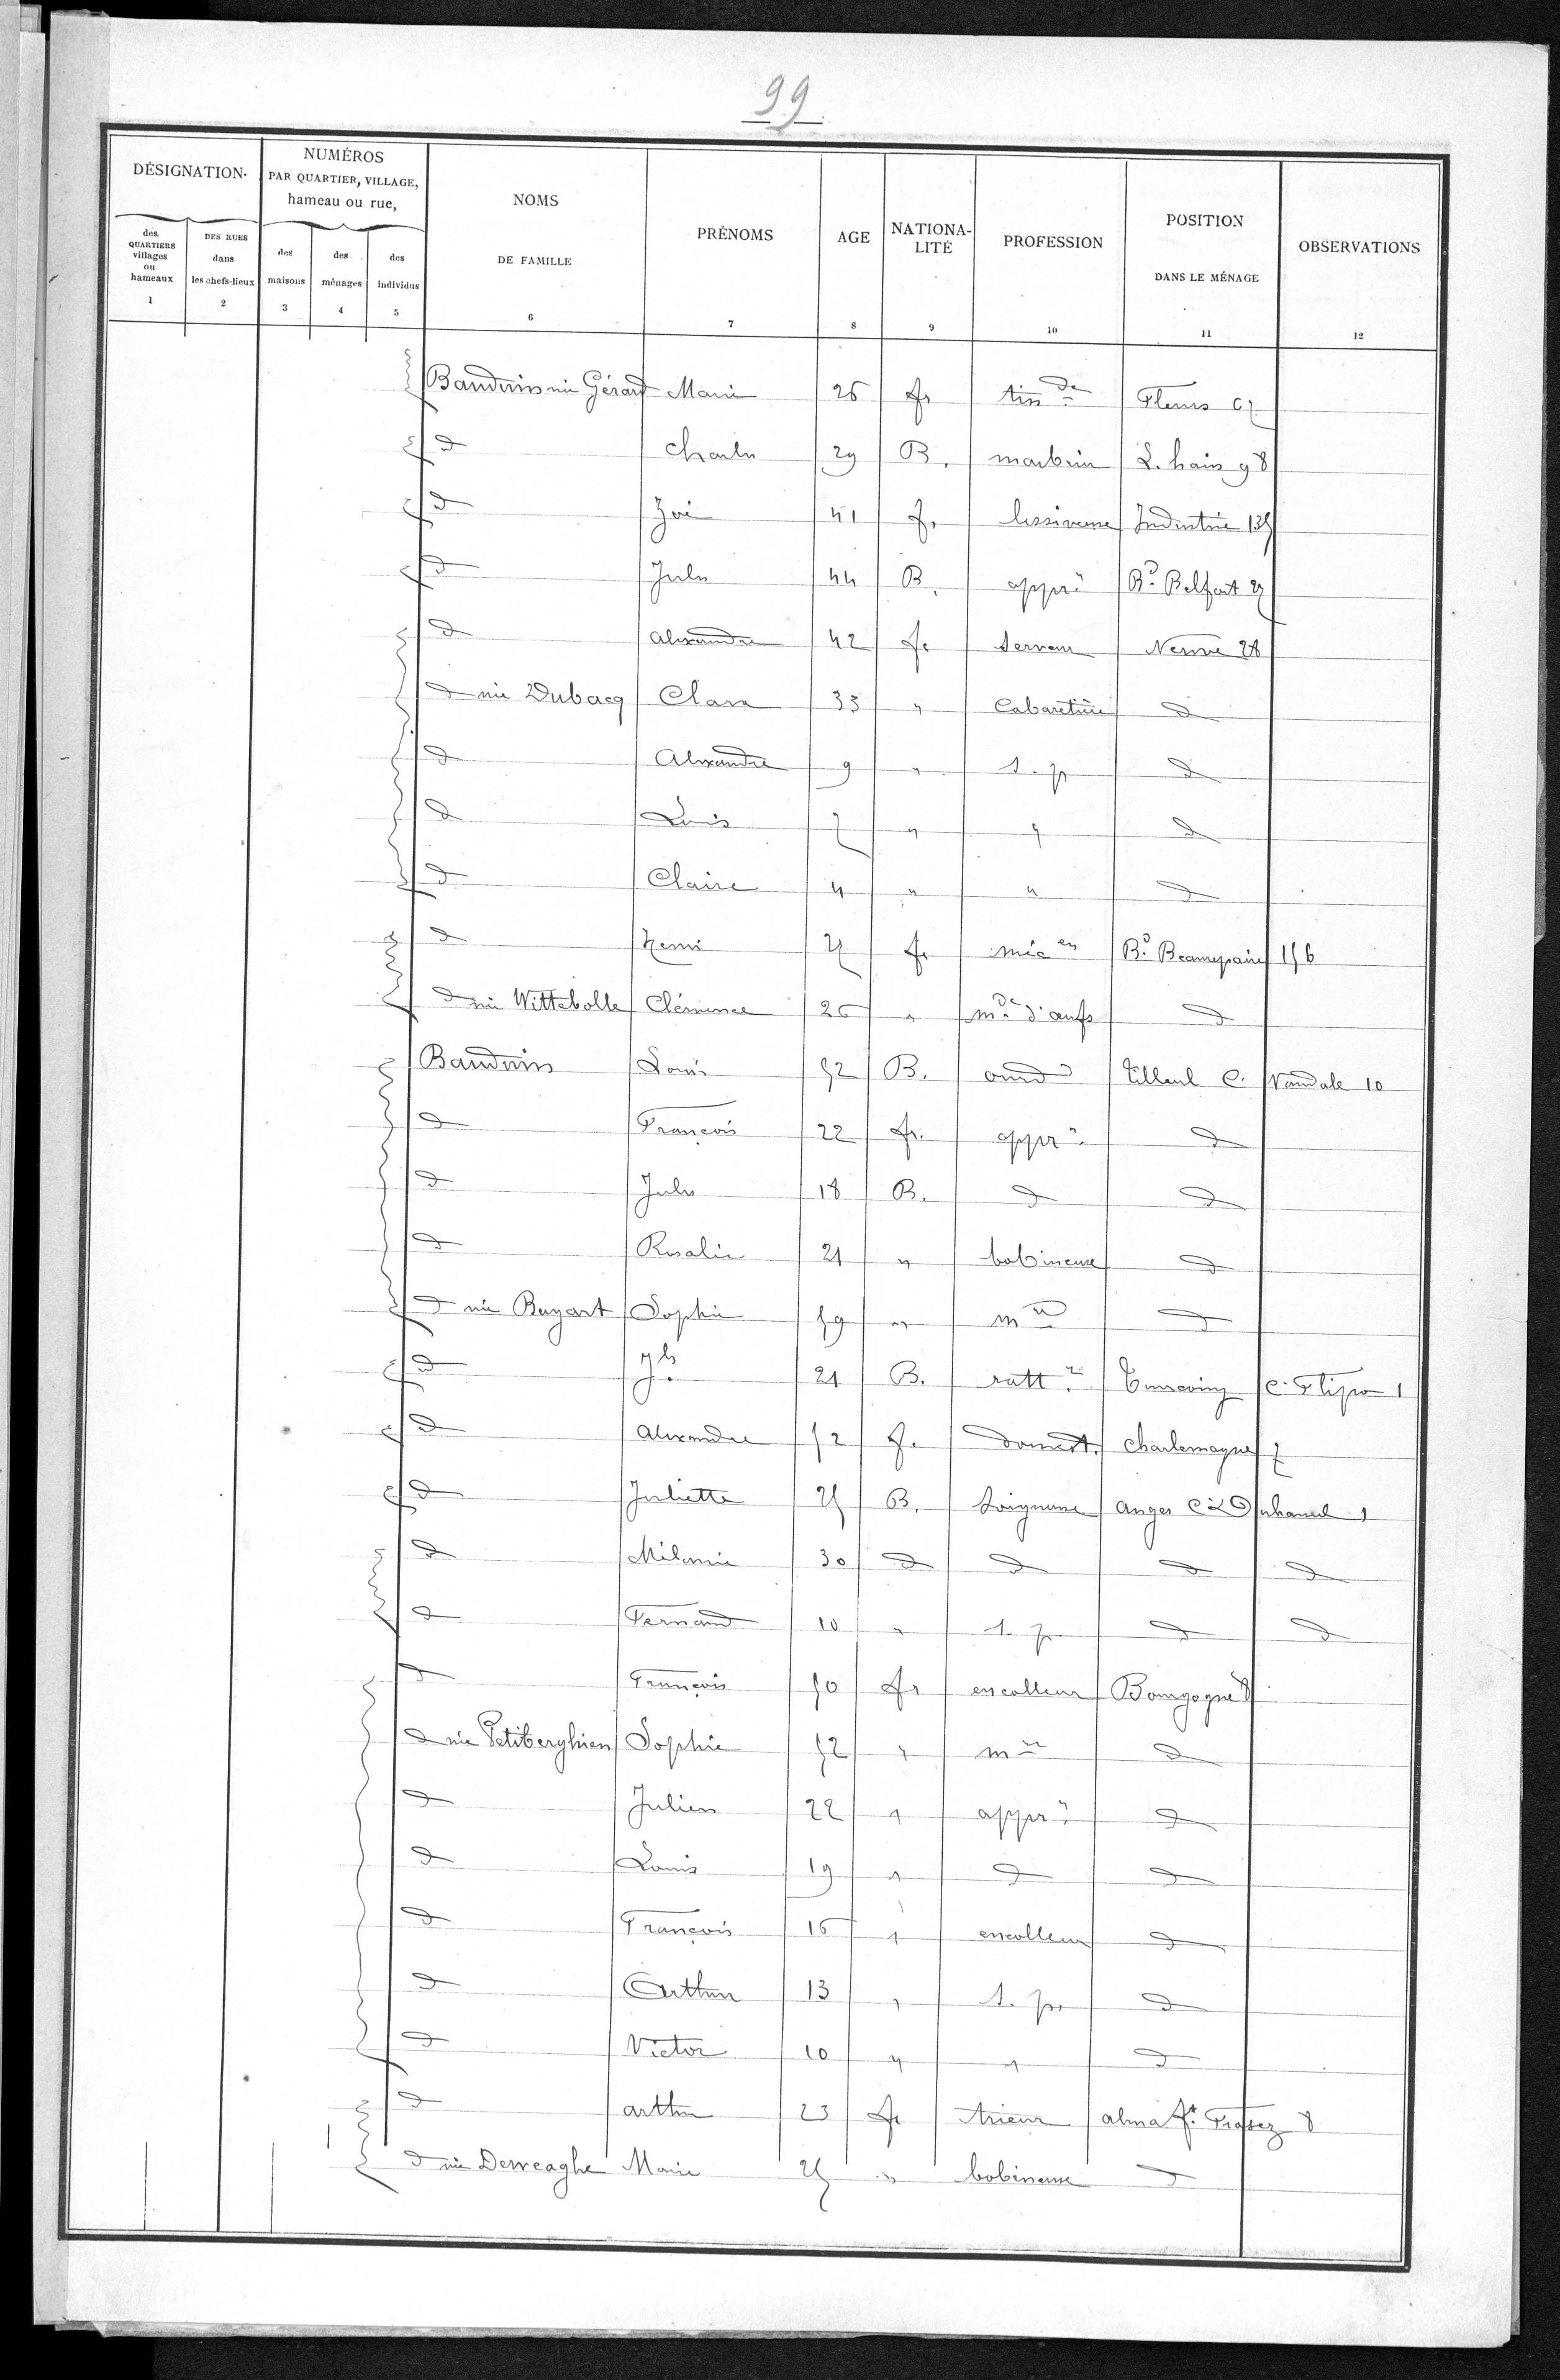 99
DÉSIGNATION. NUMÉROS PAR QUARTIER, VILLAGE, hameau ou rue, NOMS DE FAMILLE PRÉNOMS AGE NATIONALITÉ PROFESSION POSITION DANS LE MÉNAGE OBSERVATIONS
des QUARTIERS villages ou hameaux DES RUES dans les chefs-lieux des maisons des ménages des individus
1 2 3 4 5 6 7 8 9 10 11 12
Bauduin née Gérard Marie 26 fr tis de Fleurs
d Charles 29 B. L. hain 98
d Zoé 41 f. lessiveuse Industrie 135
d Jules 44 B. appr. Bd Belfort
d Alexandre 42 fr Serveur Neuve 28
d née Dubacq Clara 33 " Cabaretière d
d Alexandre 9 " s. p d
d Louis 7 " " d
d Claire 4 " " d
d Henri fr méc en Bd Beaurepaire 156
d née Wittebolle Clémence 26 " mde d'œufs d
Bauduin Louis 52 B. ourd Tilleul C. Vandale 10
d François 22 fr. appr. d
d Jules 18 B. d d
d Rosalie 21 " bobineuse d
d née Buyart Sophie 59 " mre d
d Jh. 21 B. ratt. Tourcoing C. Flipo 1
d Alexandre 52 f. domest. Charlemagne 7
d Juliette 25 B. Soigneuse Anges C. 1
d Mélanie 30 d d d d
d Fernand 10 " s. p d d
d François 50 fr encolleur Bourgogne 8
d née Petitberghien Sophie 52 " mre d
d Julien 22 " appr. d
d Louis 19 " d d
d François 16 " encolleur d
d Arthur 13 " s. p. d
d Victor 10 " " d
d arthur 23 fr trieur alma ft. Frasez 8
d née Derveaghe Marie 25 " bobineuse d